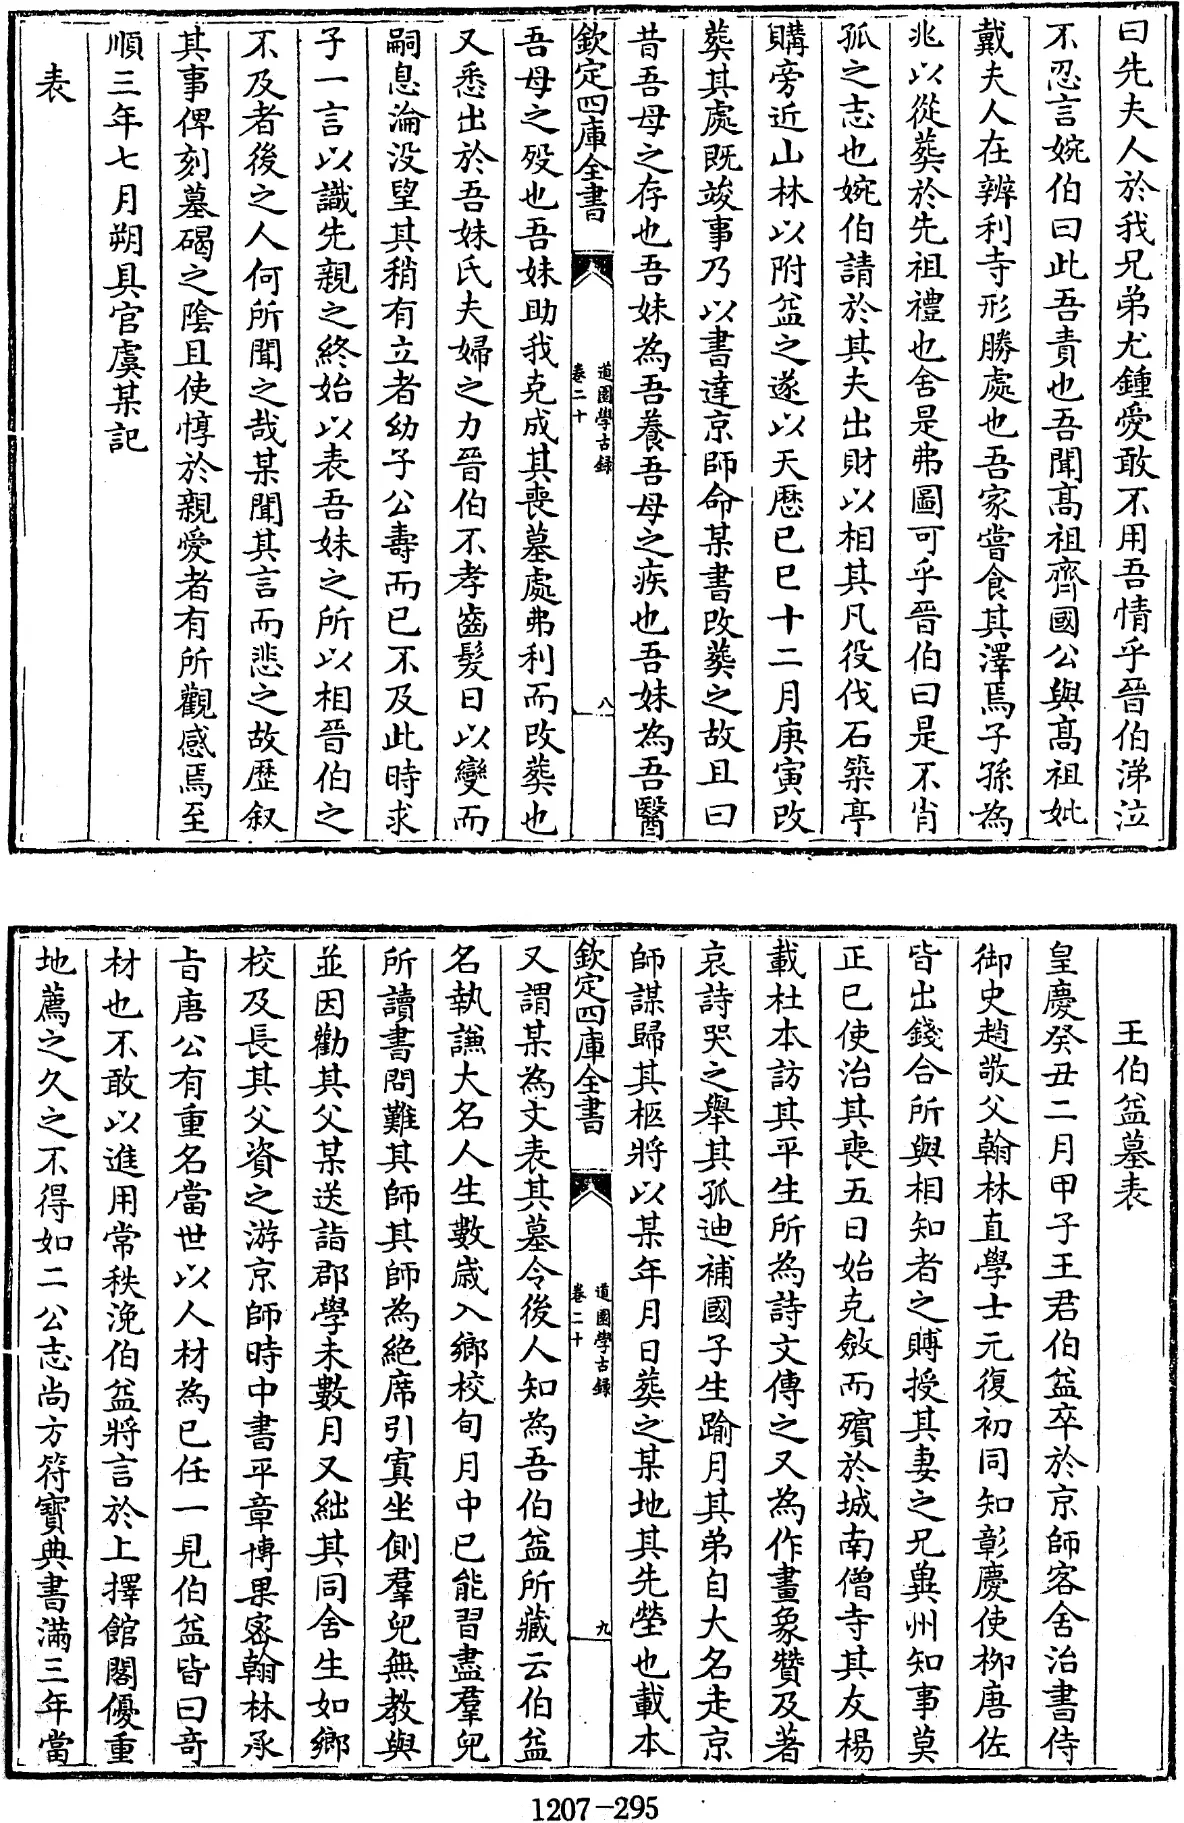 曰先夫人於我兄弟尤鍾愛敢不用吾情乎晉伯涕泣
不忍言婉伯曰此吾責也吾聞髙祖齊國公與髙祖妣
戴夫人在辨利寺形勝處也吾家嘗食其澤焉子孫為
兆以從葬於先祖禮也舍是弗圖可乎晉伯曰是不肖
孤之志也婉伯請於其夫出財以相其凡役伐石築亭
購旁近山林以附益之遂以天厯已巳十二月庚寅改
葬其處既竣事乃以書達京師命某書改葬之故且曰
昔吾母之存也吾妹為吾養吾母之疾也吾妹為吾醫
欽定四庫全書
道園學古録
卷二十
八
吾母之殁也吾妹助我克成其喪墓處弗利而改葬也
又悉出於吾妹氏夫婦之力晉伯不孝齒髮日以變而
嗣息淪没望其稍有立者幼子公壽而已不及此時求
子一言以識先親之終始以表吾妹之所以相晉伯之
不及者後之人何所聞之哉某聞其言而悲之故歴叙
其事俾刻墓碣之陰且使惇於親愛者有所觀感焉至
順三年七月朔具官虞某記
表
王伯益墓表
皇慶癸丑二月甲子王君伯益卒於京師客舍治書侍
御史趙敬父翰林直學士元復初同知彰慶使栁唐佐
皆出錢合所與相知者之賻授其妻之兄兾州知事莫
正已使治其喪五日始克斂而殯於城南僧寺其友楊
載杜本訪其平生所為詩文傳之又為作畫象贊及著
哀詩哭之舉其孤迪補國子生踰月其弟自大名走京
師謀歸其柩將以某年月日葬之某地其先塋也載本
欽定四庫全書
道園學古録
卷二十
九
又謂某為文表其墓令後人知為吾伯益所藏云伯益
名執謙大名人生數歲入鄉校旬月中已能習盡羣兒
所讀書問難其師其師為絶席引寘坐側羣兒無敎與
並因勸其父某送詣郡學未數月又絀其同舍生如鄉
校及長其父資之游京師時中書平章博果宻翰林承
㫖唐公有重名當世以人材為已任一見伯益皆曰奇
材也不敢以進用常秩浼伯益將言於上擇館閣優重
地薦之久之不得如二公志尚方符寶典書滿三年當
1207-295